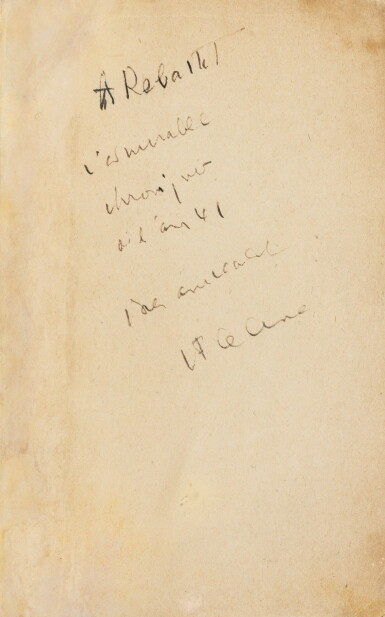 A Rebatet
l'admirable
chroniqueur
de l'an 41
bien amicalement
LF Céline